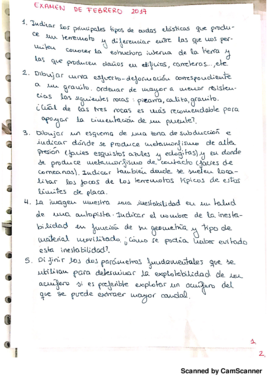 EXAMEN DE FEBRERO 2017
1. Indicar los principales tipos de ondas elásticas que produ-
ce un terremoto y diferenciar entre las que nos per-
miten conocer la estructura interna de la tierra y
las que producen daños en edificios, carreteras...etc.
2. Dibujar curva esfuerzo-deformación correspondiente
a un granito. Ordenar de mayor a menor resisten-
cias las siguientes rocas: pizarra, caliza, granito.
¿Cuál de las tres rocas es más recomendable para
apoyar la cimentación de un puente?.
3. Dibujar un esquema de una zona de subducción e
indicar dónde se produce metamorfismo de alta
presión (facies esquistos azules y eclogitas) y en donde
se produce metamorfismo de contacto (facies de
corneanas). Indicar también donde se suelen loca-
lizar los focos de los terremotos típicos de estos
límites de placa.
4. La imagen muestra una inestabilidad en un talud
de una autopista. Indicar el nombre de la inesta-
bilidad en función de su geometría y tipo de
material movilizado ¿Cómo se podía haber evitado
esta inestabilidad?.
5. Definir los dos parámetros fundamentales que se
utilizan para determinar la explotabilidad de un
acuífero si es preferible explotar un acuífero del
que se puede extraer mayor caudal.
1
2
Scanned by CamScanner